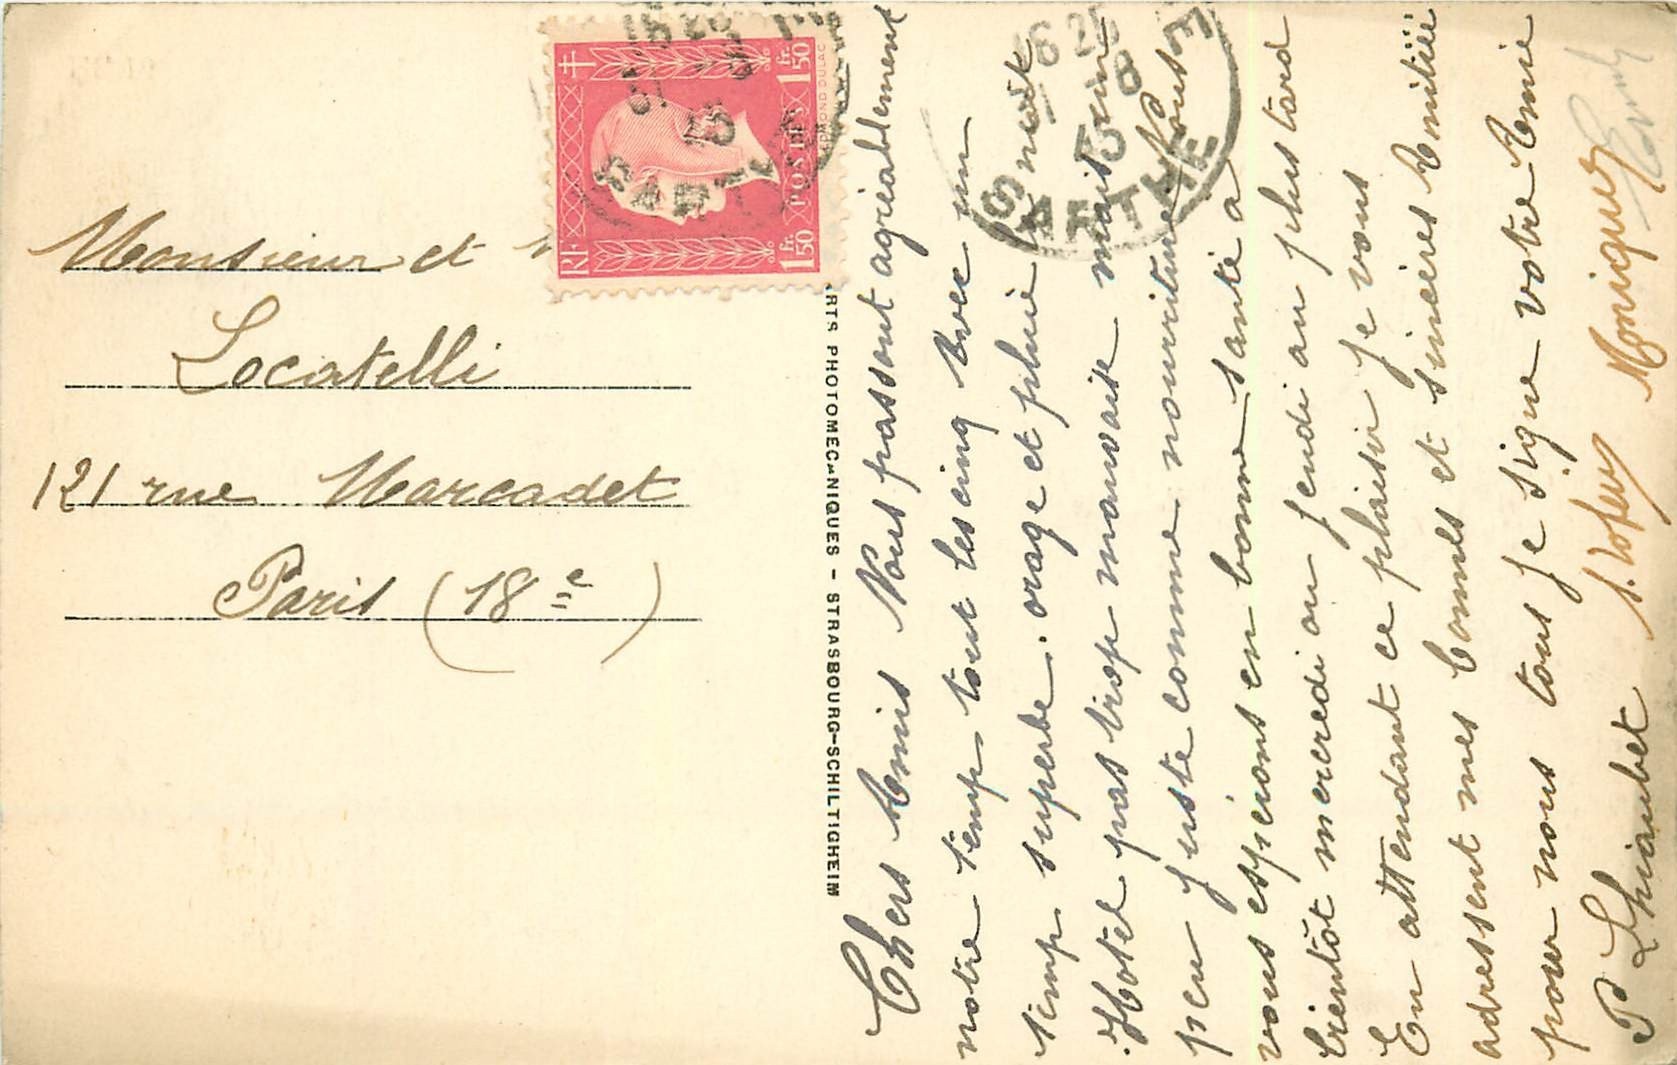 Monsieur et
Locatelli
121 rue Marcadet
Paris (18e)
RF
POSTES
1fr.50
1fr.50
EDMOND DULAC
SARTHE
16 25
8
SARTHE
ARTS PHOTOMECANIQUES - STRASBOURG-SCHILTIGHEIM
Chers Amis Nous passont agréablement
notre temp tout les cinq Avec un
temp superbe. orage et pluie nuit
Hotel pas trop mauvais mais un
peu juste comme nourriture Nous
vous espérons en bonne santé a
bientôt mercredi ou jeudi au plus tard
En attendant ce plaisir je vous
adressent mes bonnes et sincères Amitiée
pour nous tous je signe votre Amie
P Lhiaubet
Monique